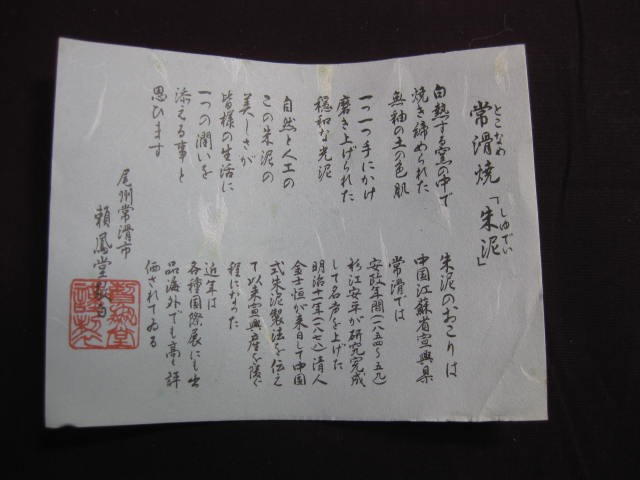 とこなめ
常滑焼「朱泥」
しゅでい
白熱する窯の中で
焼き締められた
無釉の土の色肌
一つ一つ手にかけ
磨き上げられた
穏和な光泥
自然と人工の
この朱泥の
美しさが
皆様の生活に
一つの潤いを
添える事と
思ひます
朱泥のおこりは
中国江蘇省宜興県
常滑では
安政年間(一八五四〜五九)
杉江安平が研究完成
して名声を上げた
明治一一年(一八七八)清人
金士恒が来日して中国
式朱泥製法を伝え
て以来宜興産を凌ぐ
程になった
近年は
各種国際展にも出
品海外でも高く評
価されてゐる
尾州常滑市
頼鳳堂